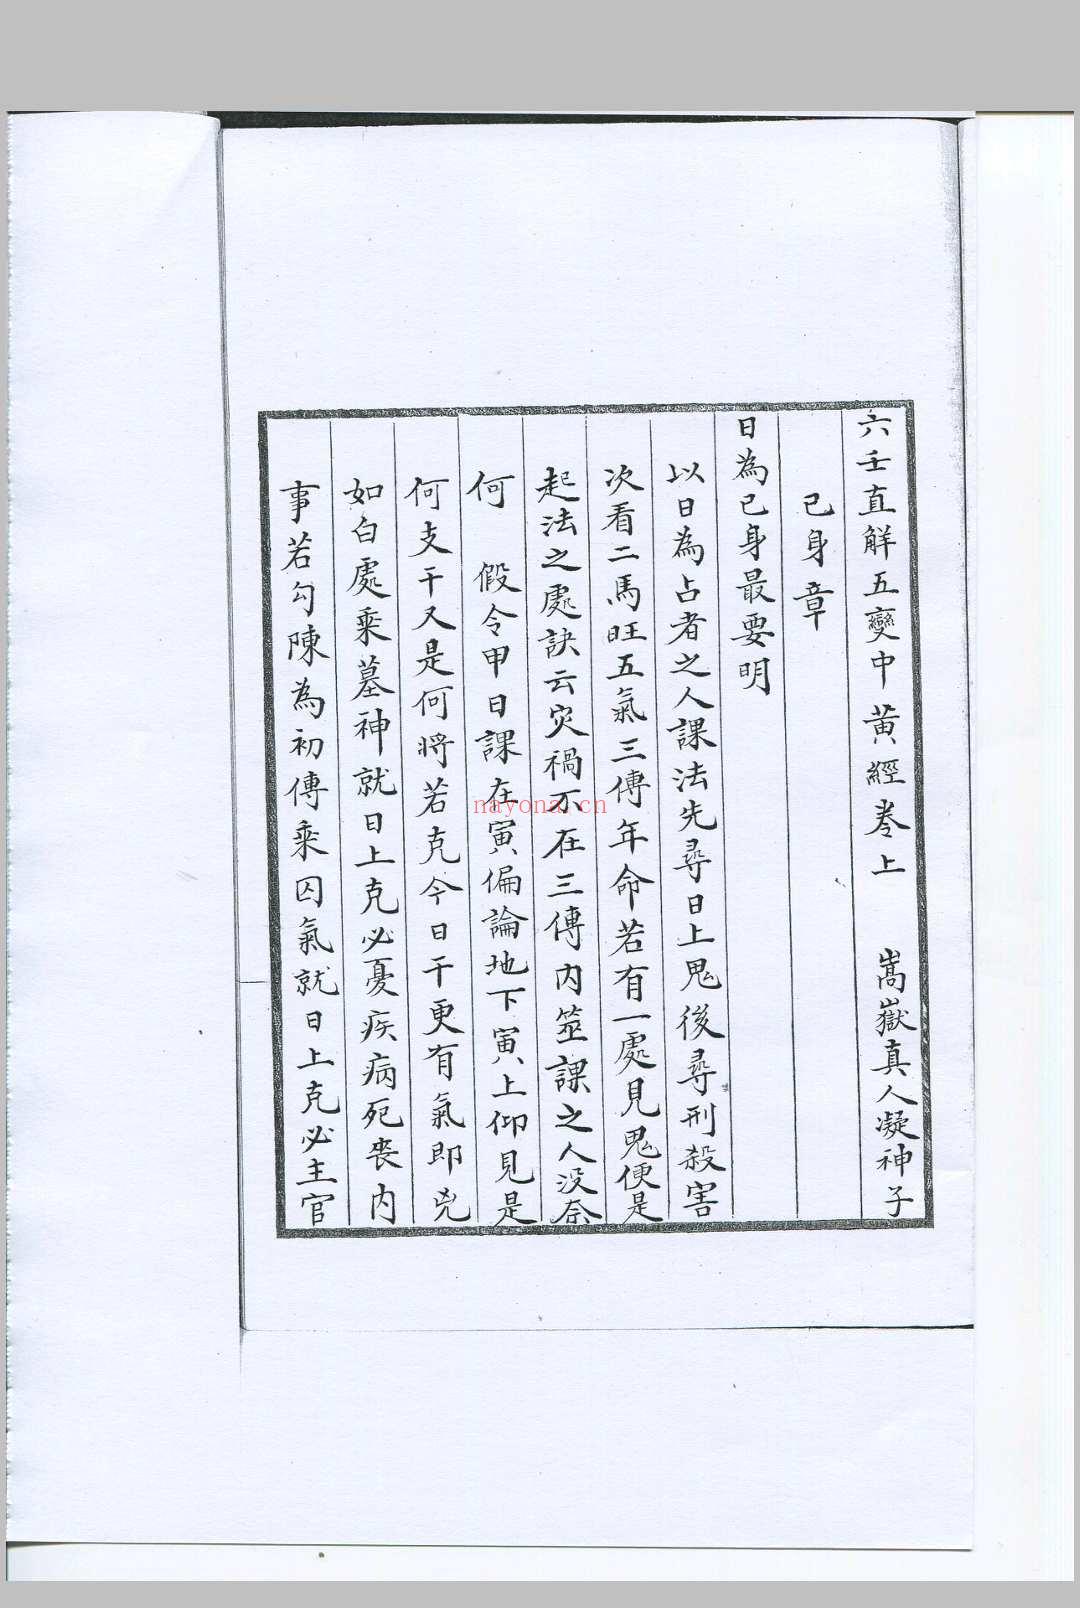 六壬直解五變中黃經卷上　嵩嶽真人凝神子
己身章
日為己身最要明
以日為占者之人課法先尋日上鬼後尋刑殺害
次看二馬旺五氣三傳年命若有一處見鬼便是
起法之處訣云災禍不在三傳內筮課之人没奈
何　假令甲日課在寅偏論地下寅上仰見是
何支干又是何將若克今日干更有氣即兇
如白處乘墓神就日上克必憂疾病死喪內
事若勾陳為初傳乘囚氣就日上克必主官
nayona.cn